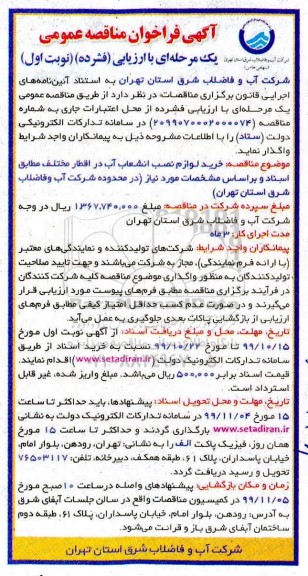 آگهی فراخوان مناقصه عمومی
یک مرحله‌ای با ارزیابی (فشرده) (نوبت اول)
شرکت آب و فاضلاب شرق استان تهران
شرکت آب و فاضلاب شرق استان تهران به استناد آئین‌نامه‌های
اجرایی قانون برگزاری مناقصات، در نظر دارد از طریق مناقصه عمومی
یک مرحله‌ای با ارزیابی فشرده از محل اعتبارات جاری به شماره
مناقصه (۲۰۹۹۰۷۰۰۰۲۰۰۰۰۷۴) در سامانه تدارکات الکترونیکی
دولت (ستاد) را با اطلاعات مشروحه ذیل به پیمانکاران واجد شرایط
واگذار نماید.
موضوع مناقصه: خرید لوازم نصب انشعاب آب در اقطار مختلف مطابق
اسناد و براساس مشخصات مورد نیاز (در محدوده شرکت آب وفاضلاب
شرق استان تهران)
مبلغ سپرده شرکت در مناقصه: مبلغ ۱۳۶۷,۷۴۰,۰۰۰ ریال در وجه
شرکت آب و فاضلاب شرق استان تهران
مدت اجرای کار: ۳ماه
پیمانکاران واجد شرایط: شرکت‌های تولیدکننده و نمایندگی‌های معتبر
(با ارائه فرم نمایندگی)، مجاز به شرکت می‌باشند و جهت تایید صلاحیت
تولیدکنندگان به منظور واگذاری موضوع مناقصه کلیه شرکت کنندگان
در فرآیند برگزاری مناقصه مطابق فرم‌های پیوست مورد ارزیابی قرار
می‌گیرند و در صورت عدم کسب حداقل امتیاز کیفی مطابق فرم‌های
ارزیابی از بازگشایی پاکات بعدی جلوگیری به عمل می‌آید.
تاریخ، مهلت، محل و مبلغ دریافت اسناد: از آگهی نوبت اول مورخ
۹۹/۱۰/۱۵ تا مورخ ۹۹/۱۰/۲۲ نسبت به خرید اسناد از طریق
سامانه تدارکات الکترونیک دولت (www.setadiran.ir) اقدام نمایند.
قیمت اسناد برابر ۵۰۰,۰۰۰ ریال می‌باشد. مبلغ واریز شده، غیر قابل
استرداد است.
تاریخ، مهلت و محل تحویل اسناد: پیشنهادها، باید حداکثر تا ساعت
۱۵ مورخ ۹۹/۱۱/۰۴ در سامانه تدارکات الکترونیک دولت به نشانی
www.setadiran.ir بارگذاری گردند و حداکثر تا ساعت ۱۵ مورخ
همان روز، فیزیک پاکت الف را به نشانی: تهران، رودهن، بلوار امام،
خیابان پاسداران، پلاک ۶۱، طبقه همکف، دبیرخانه، تلفن: ۷۶۵۰۳۱۱۷
تحویل و رسید دریافت گردد.
زمان و مکان بازگشایی: پیشنهادهای واصله در ساعت ۱۰ صبح مورخ
۹۹/۱۱/۰۵ در کمیسیون مناقصات واقع در سالن جلسات آبفای شرق
به آدرس: رودهن، بلوار امام، خیابان پاسداران، پلاک ۶۱، طبقه دوم
ساختمان آبفای شرق باز و قرائت می‌شود.
شرکت آب و فاضلاب شرق استان تهران